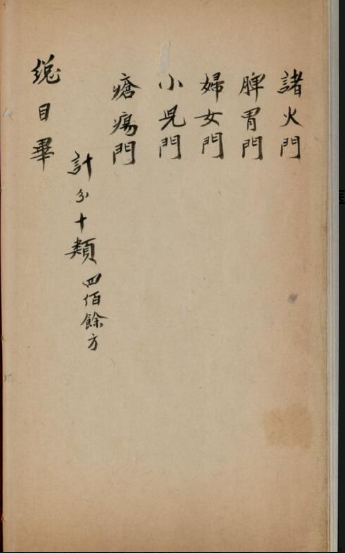 諸火門
脾胃門
婦女門
小児門
瘡瘍門
計分十類四佰餘方
総目畢